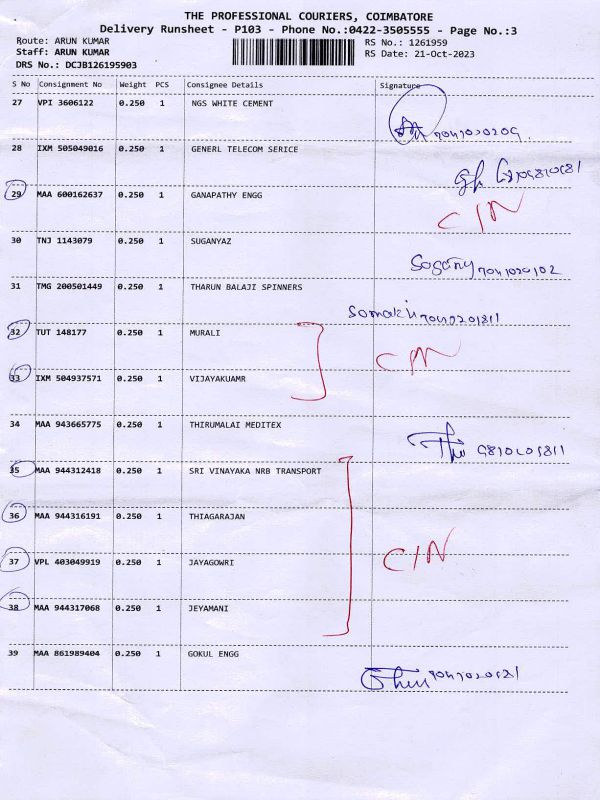 THE PROFESSIONAL COURIERS, COIMBATORE
Delivery Runsheet - P103 - Phone No.:0422-3505555 - Page No.:3
Route: ARUN KUMAR RS No.: 1261959
Staff: ARUN KUMAR RS Date: 21-Oct-2023
DRS No.: DCJB126195903
S No Consignment No Weight PCS Consignee Details Signature
27 VPI 3606122 0.250 1 NGS WHITE CEMENT
28 IXM 505049016 0.250 1 GENERL TELECOM SERICE
29 MAA 600162637 0.250 1 GANAPATHY ENGG C/N
30 TNJ 1143079 0.250 1 SUGANYAZ
31 TMG 200501449 0.250 1 THARUN BALAJI SPINNERS
32 TUT 148177 0.250 1 MURALI C/N
33 IXM 504937571 0.250 1 VIJAYAKUAMR
34 MAA 943665775 0.250 1 THIRUMALAI MEDITEX
35 MAA 944312418 0.250 1 SRI VINAYAKA NRB TRANSPORT
36 MAA 944316191 0.250 1 THIAGARAJAN
37 VPL 403049919 0.250 1 JAYAGOWRI C/N
38 MAA 944317068 0.250 1 JEYAMANI
39 MAA 861989404 0.250 1 GOKUL ENGG